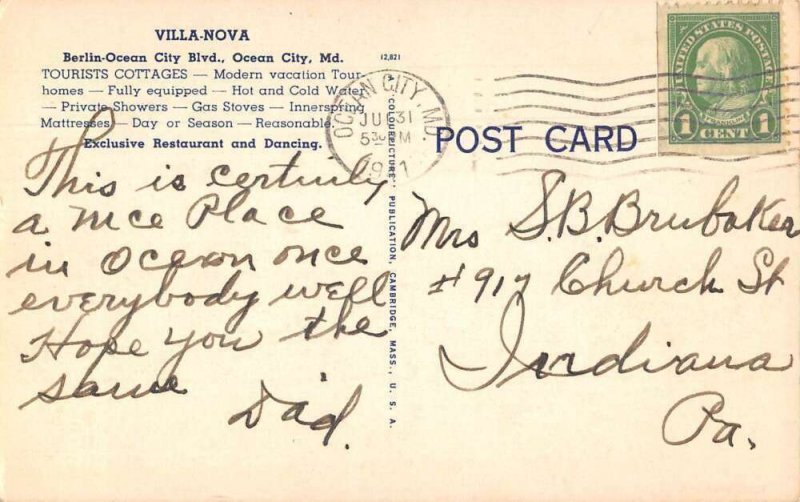 VILLA-NOVA
Berlin-Ocean City Blvd., Ocean City, Md.
TOURISTS COTTAGES — Modern vacation Tour-
homes — Fully equipped — Hot and Cold Water
— Private Showers — Gas Stoves — Innerspring
Mattresses — Day or Season — Reasonable.
Exclusive Restaurant and Dancing.
This is certinly
a nice Place
in Ocean once
everybody well
Hope you the
same
Dad.
12,821
A "COLOURPICTURE" PUBLICATION, CAMBRIDGE, MASS., U. S. A.
OCEAN CITY, MD.
JUL 31
5 30 PM
POST CARD
UNITED STATES POSTAGE
FRANKLIN
1 CENT 1
Mrs S.B. Brubaker
#917 Church St
Indiana
Pa.